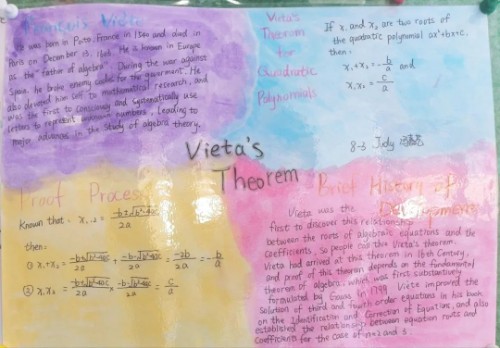 François Viète
He was born in          , France in 1540 and died in
Paris on December 13, 1603. He is known in Europe
as the "father of algebra". During the war against
Spain, he broke enemy codes for the government. He
also devoted him self to mathematical research, and
was the first to consciously and systematically use
letters to represent      numbers, leading to
major advances in the study of algebra theory.
Vieta's
Theorem
for
Quadratic
Polynomials
If x₁ and x₂ are two roots of
the quadratic polynomial ax²+bx+c,
then:
x₁+x₂ = -b/a and
x₁x₂ = c/a
8-3 Judy
Vieta's
Theorem
Proof Process
Known that: x₁,₂ = (-b±√(b²-4ac))/2a
then:
① x₁+x₂ = (-b+√(b²-4ac))/2a + (-b-√(b²-4ac))/2a = -2b/2a = -b/a
② x₁x₂ = (-b+√(b²-4ac))/2a × (-b-√(b²-4ac))/2a = c/a
Brief History of
Development
Vieta was the
first to discover this relationship
between the roots of algebraic equations and the
coefficients, so people call this Vieta's theorem.
Vieta had arrived at this theorem in 16th Century,
and proof of this theorem depends on the fundamental
theorem of algebra, which was first substantively
formulated by Gauss in 1799. Viète improved the
solution of third and fourth order equations in his book
on the Identification and Correction of Equations, and also
established the relationship between equation roots and
coefficients for the case of n=2 and 3.